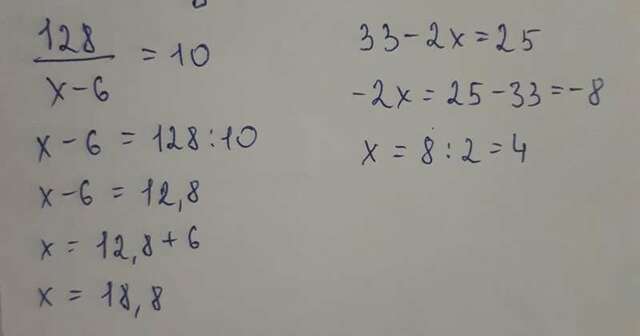 128
x-6 = 10
x-6 = 128:10
x-6 = 12,8
x = 12,8+6
x = 18,8
33-2x=25
-2x=25-33=-8
x = 8:2=4